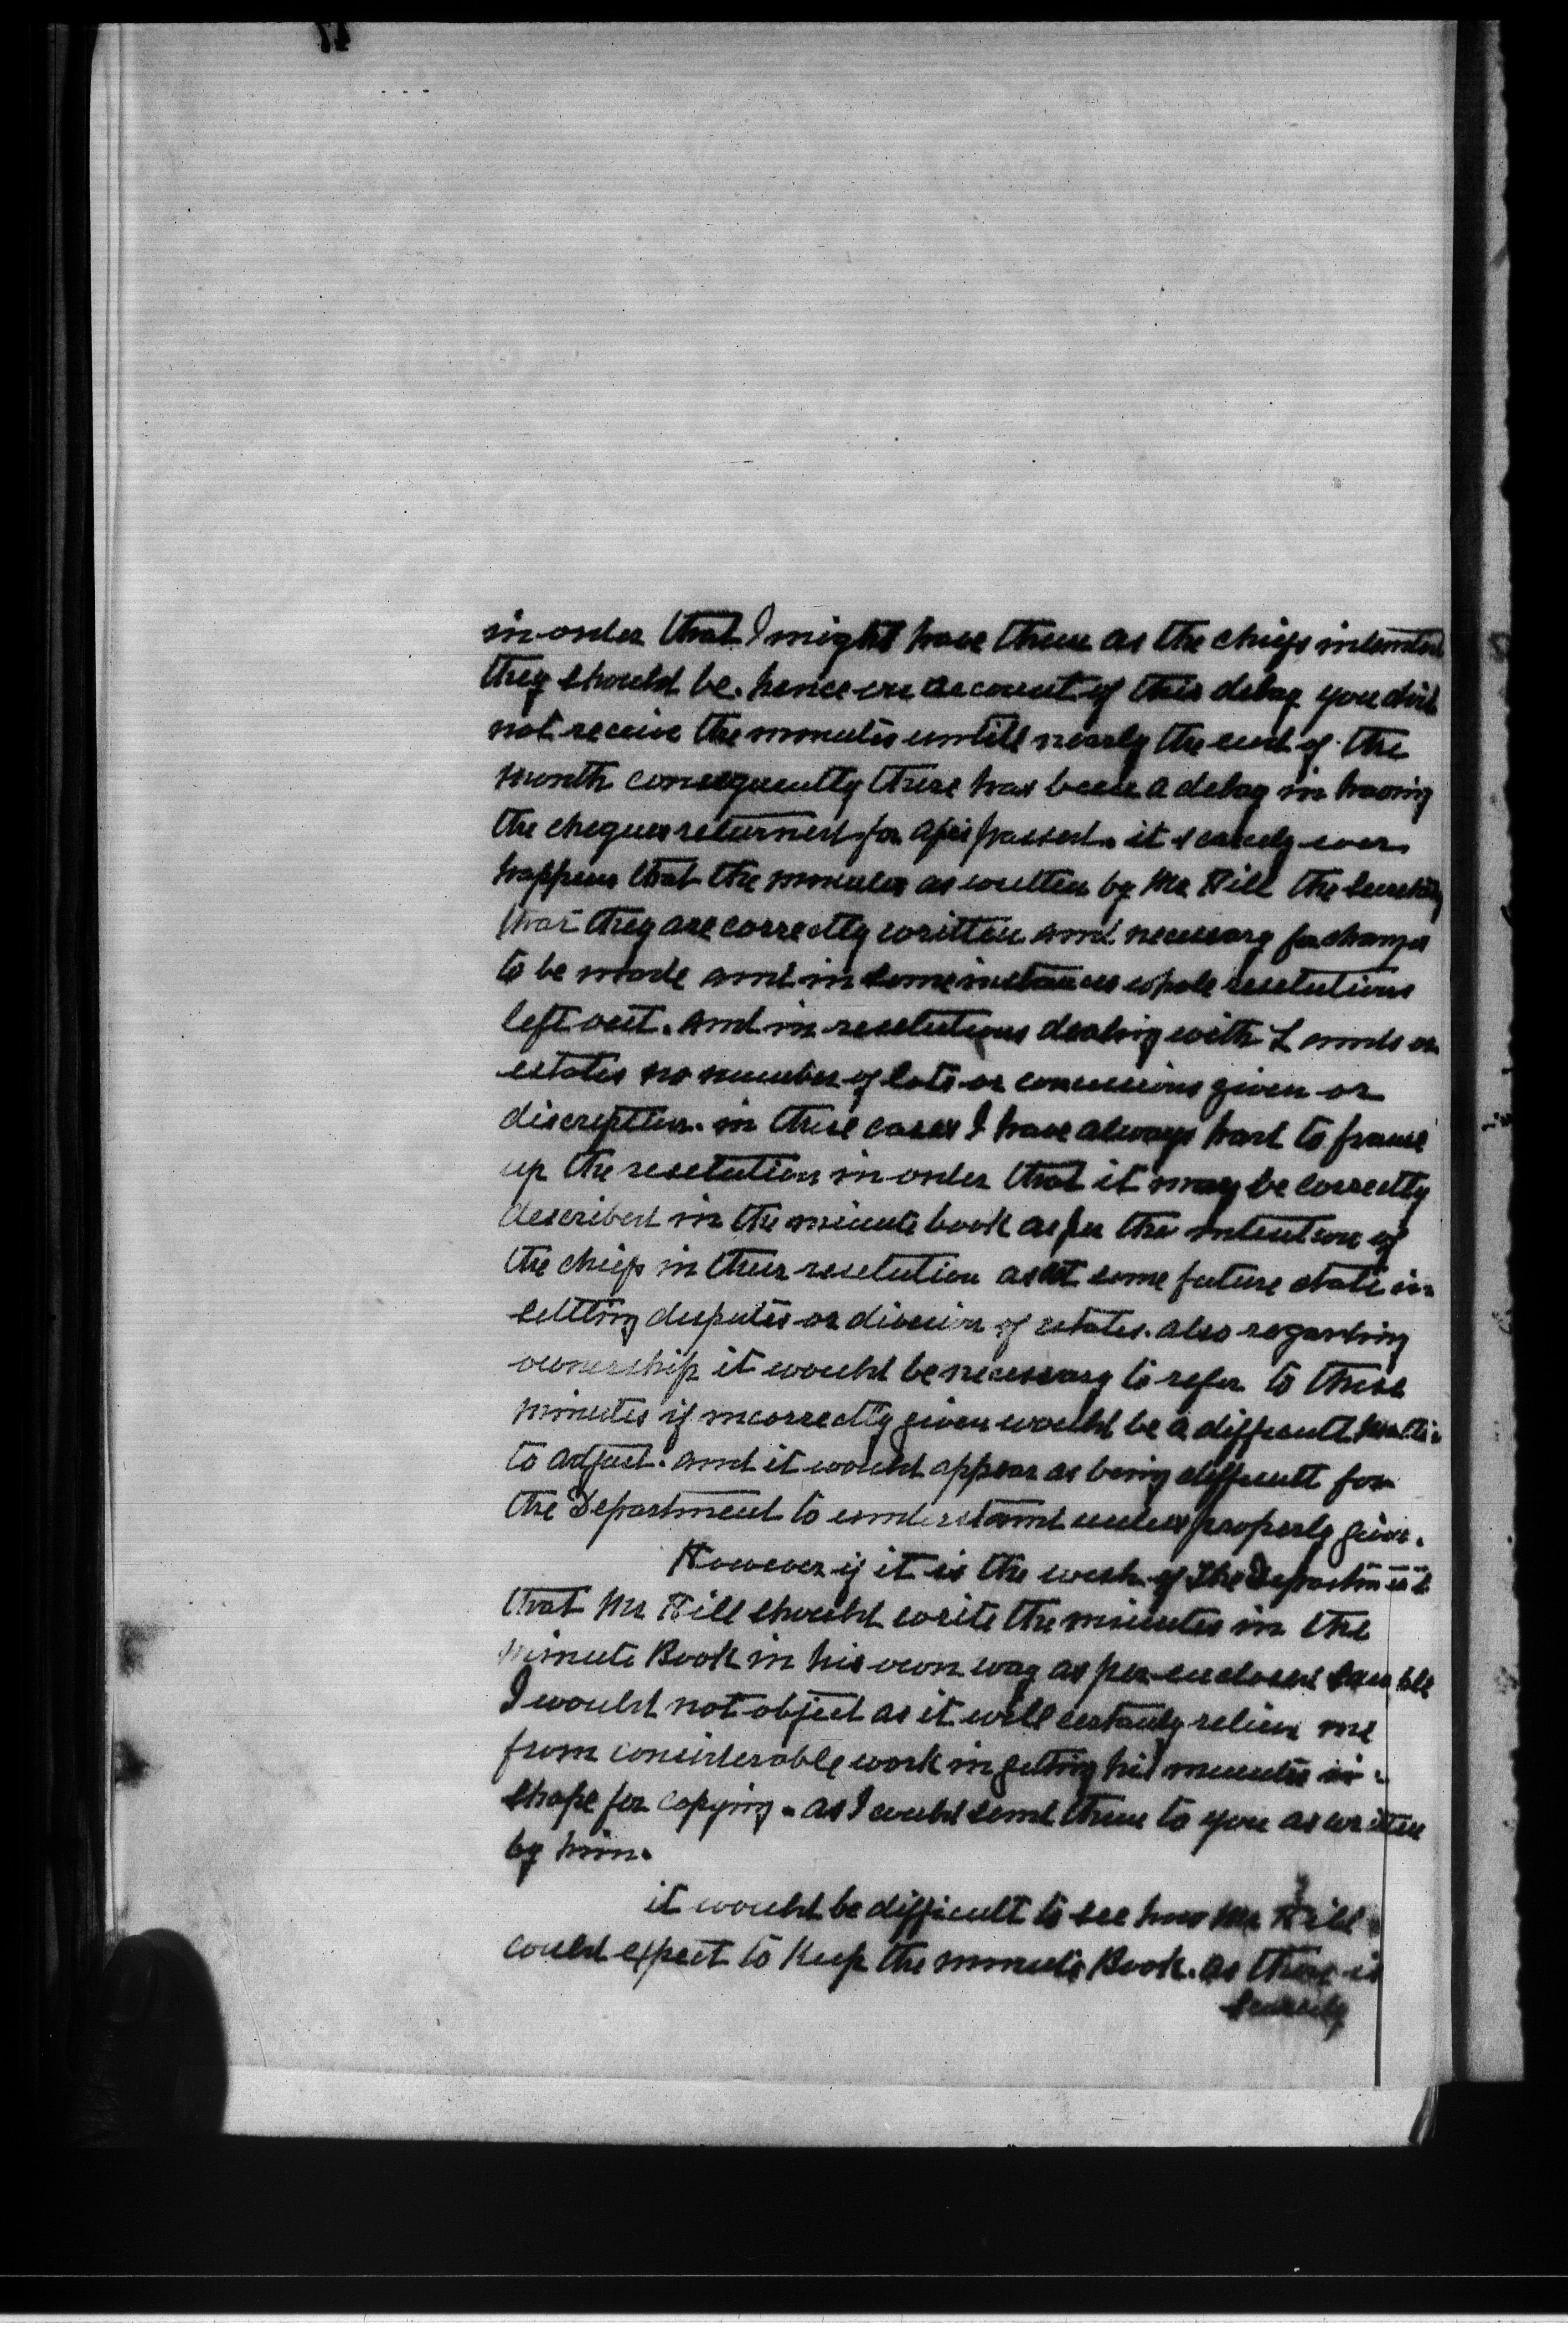 in order that I might have them as the chiefs intended
they should be. hence on account of this delay you did
not receive the minutes untill nearly the end of the
month consequently there has been a delay in having
the cheques returned for apls passed. it scarcely ever
happens that the minutes as written by Mr Hill the Secretary
that they are correctly written and necessary for changes
to be made and in some instances whole resolutions
left out. and in resolutions dealing with Lands or
estates no number of lots or concessions given or
discreption. in these cases I have always had to frame
up the resolution in order that it may be correctly
described in the minute book as per the intention of
the chiefs in their resolution as at some future date in
settling disputes or division of estates. also regarding
ownership it would be necessary to refer to these
minutes if incorrectly given would be a difficult matter
to adjust. and it would appear as being difficult for
the Department to understand unless properly given.
However if it is the wish of the Department
that Mr Hill should write the minutes in the
minute Book in his own way as per enclosed sample
I would not object as it will certainly relieve me
from considerable work in getting his minutes in
shape for copying. as I could send them to you as written
by him.
it would be difficult to see how Mr Hill
could expect to Keep the minute Book. as there is
scarcely